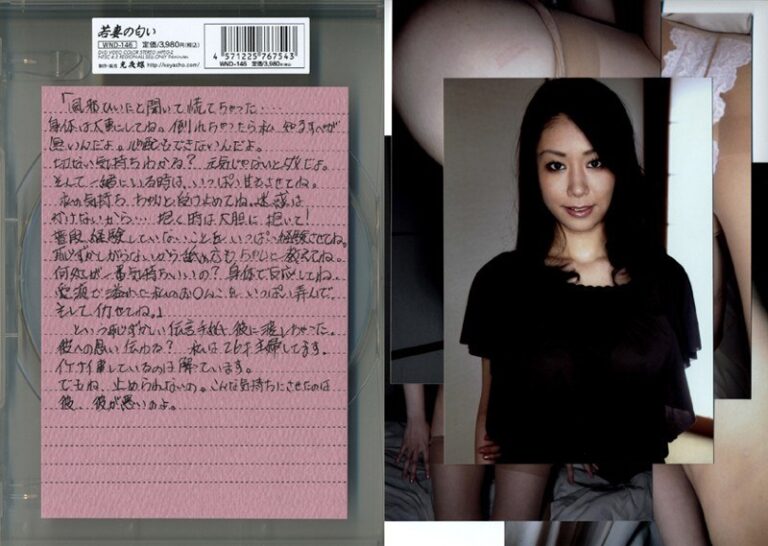 若妻の匂い
WND-146 定価/3,980円(税込)
DVD VIDEO COLOR STEREO MPEG-2
http://koyasho.com/
4 571225 767543
WND-146 定価/3,980円(税込)
「風邪ひいたと聞いて慌てちゃった…
身体は大事にしてね。倒れちゃったら私、知るすべが
無いんだよ。心配もできないんだよ。
切ない気持ちわかる？ 元気じゃないとダメだよ。
そして一緒にいる時は、いっぱい甘えさせてね。
私の気持ち、ちゃんと受けとめてね。迷惑は
かけないから… 抱く時は大胆に抱いて！
普段、経験していないことを、いっぱい経験させてね。
恥ずかしがらないから舐め方もちゃんと教えてね。
何処が一番気持ちいいの？ 身体で反応してね。
愛液で溢れた私のお○んこを、いっぱい弄んで、
そしてイカせてね。」
という恥ずかしい伝言手紙、彼に渡しちゃった。
彼への思い伝わる？ 私は26才主婦してます。
イケナイ事しているのは解っています。
でもね、止められないの。こんな気持ちにさせたのは
彼、彼が悪いのよ。